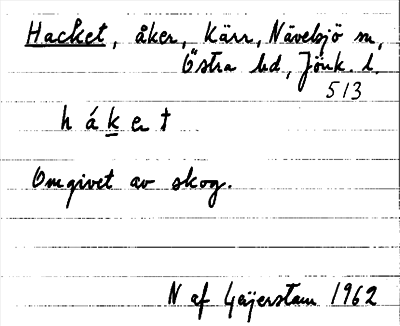 Hacket, åker, Kärr, Nävelsjö sn,
Östra hd, Jönk. l.
513
háket
Omgivet av skog.
N af Geijerstam 1962